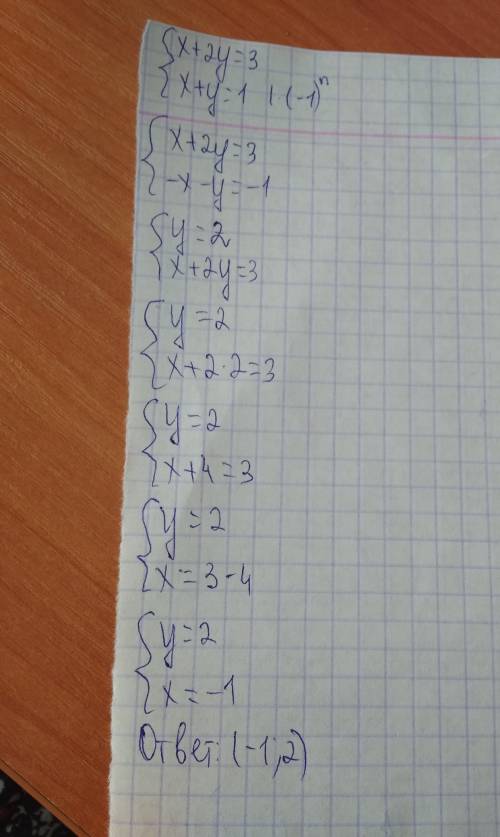 {x+2y=3
{x+y=1 | ·(-1)ⁿ
{x+2y=3
{-x-y=-1
{y=2
{x+2y=3
{y=2
{x+2·2=3
{y=2
{x+4=3
{y=2
{x=3-4
{y=2
{x=-1
Ответ: (-1;2)